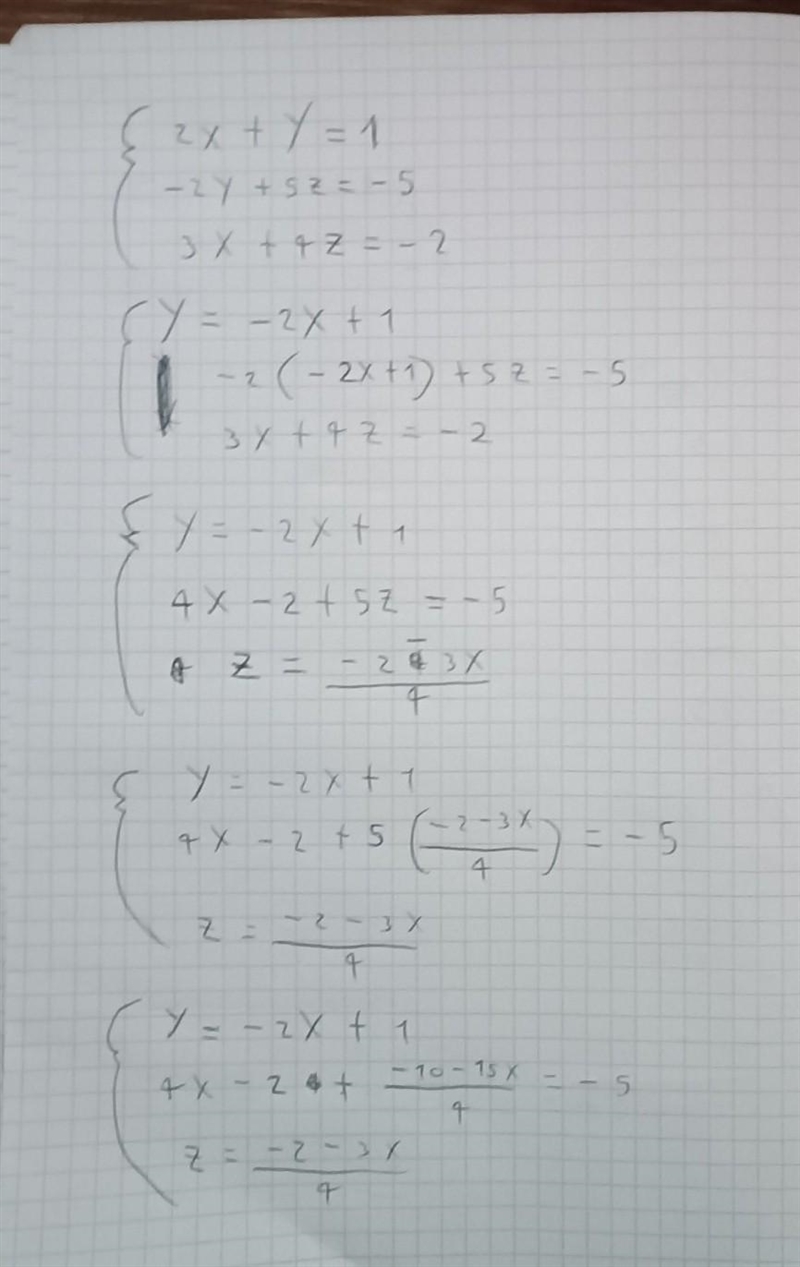 2x + y = 1
-2y + 5z = -5
3x + 4z = -2
y = -2x + 1
-2(-2x+1) + 5z = -5
3x + 4z = -2
y = -2x + 1
4x - 2 + 5z = -5
z = (-2 - 3x)/4
y = -2x + 1
4x - 2 + 5((-2-3x)/4) = -5
z = (-2 - 3x)/4
y = -2x + 1
4x - 2 + (-10-15x)/4 = -5
z = (-2 - 3x)/4